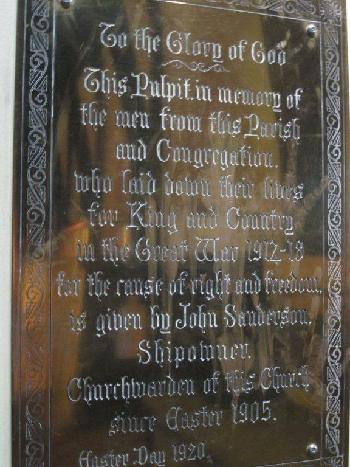 To the Glory of God
This Pulpit, in memory of
the men from this Parish
and Congregation.
who laid down their lives
for King and Country
in the Great War 1912-18
for the cause of right and freedom,
is given by John Sanderson,
Shipowner.
Churchwarden of this Church
since Easter 1905.
Easter Day 1920.